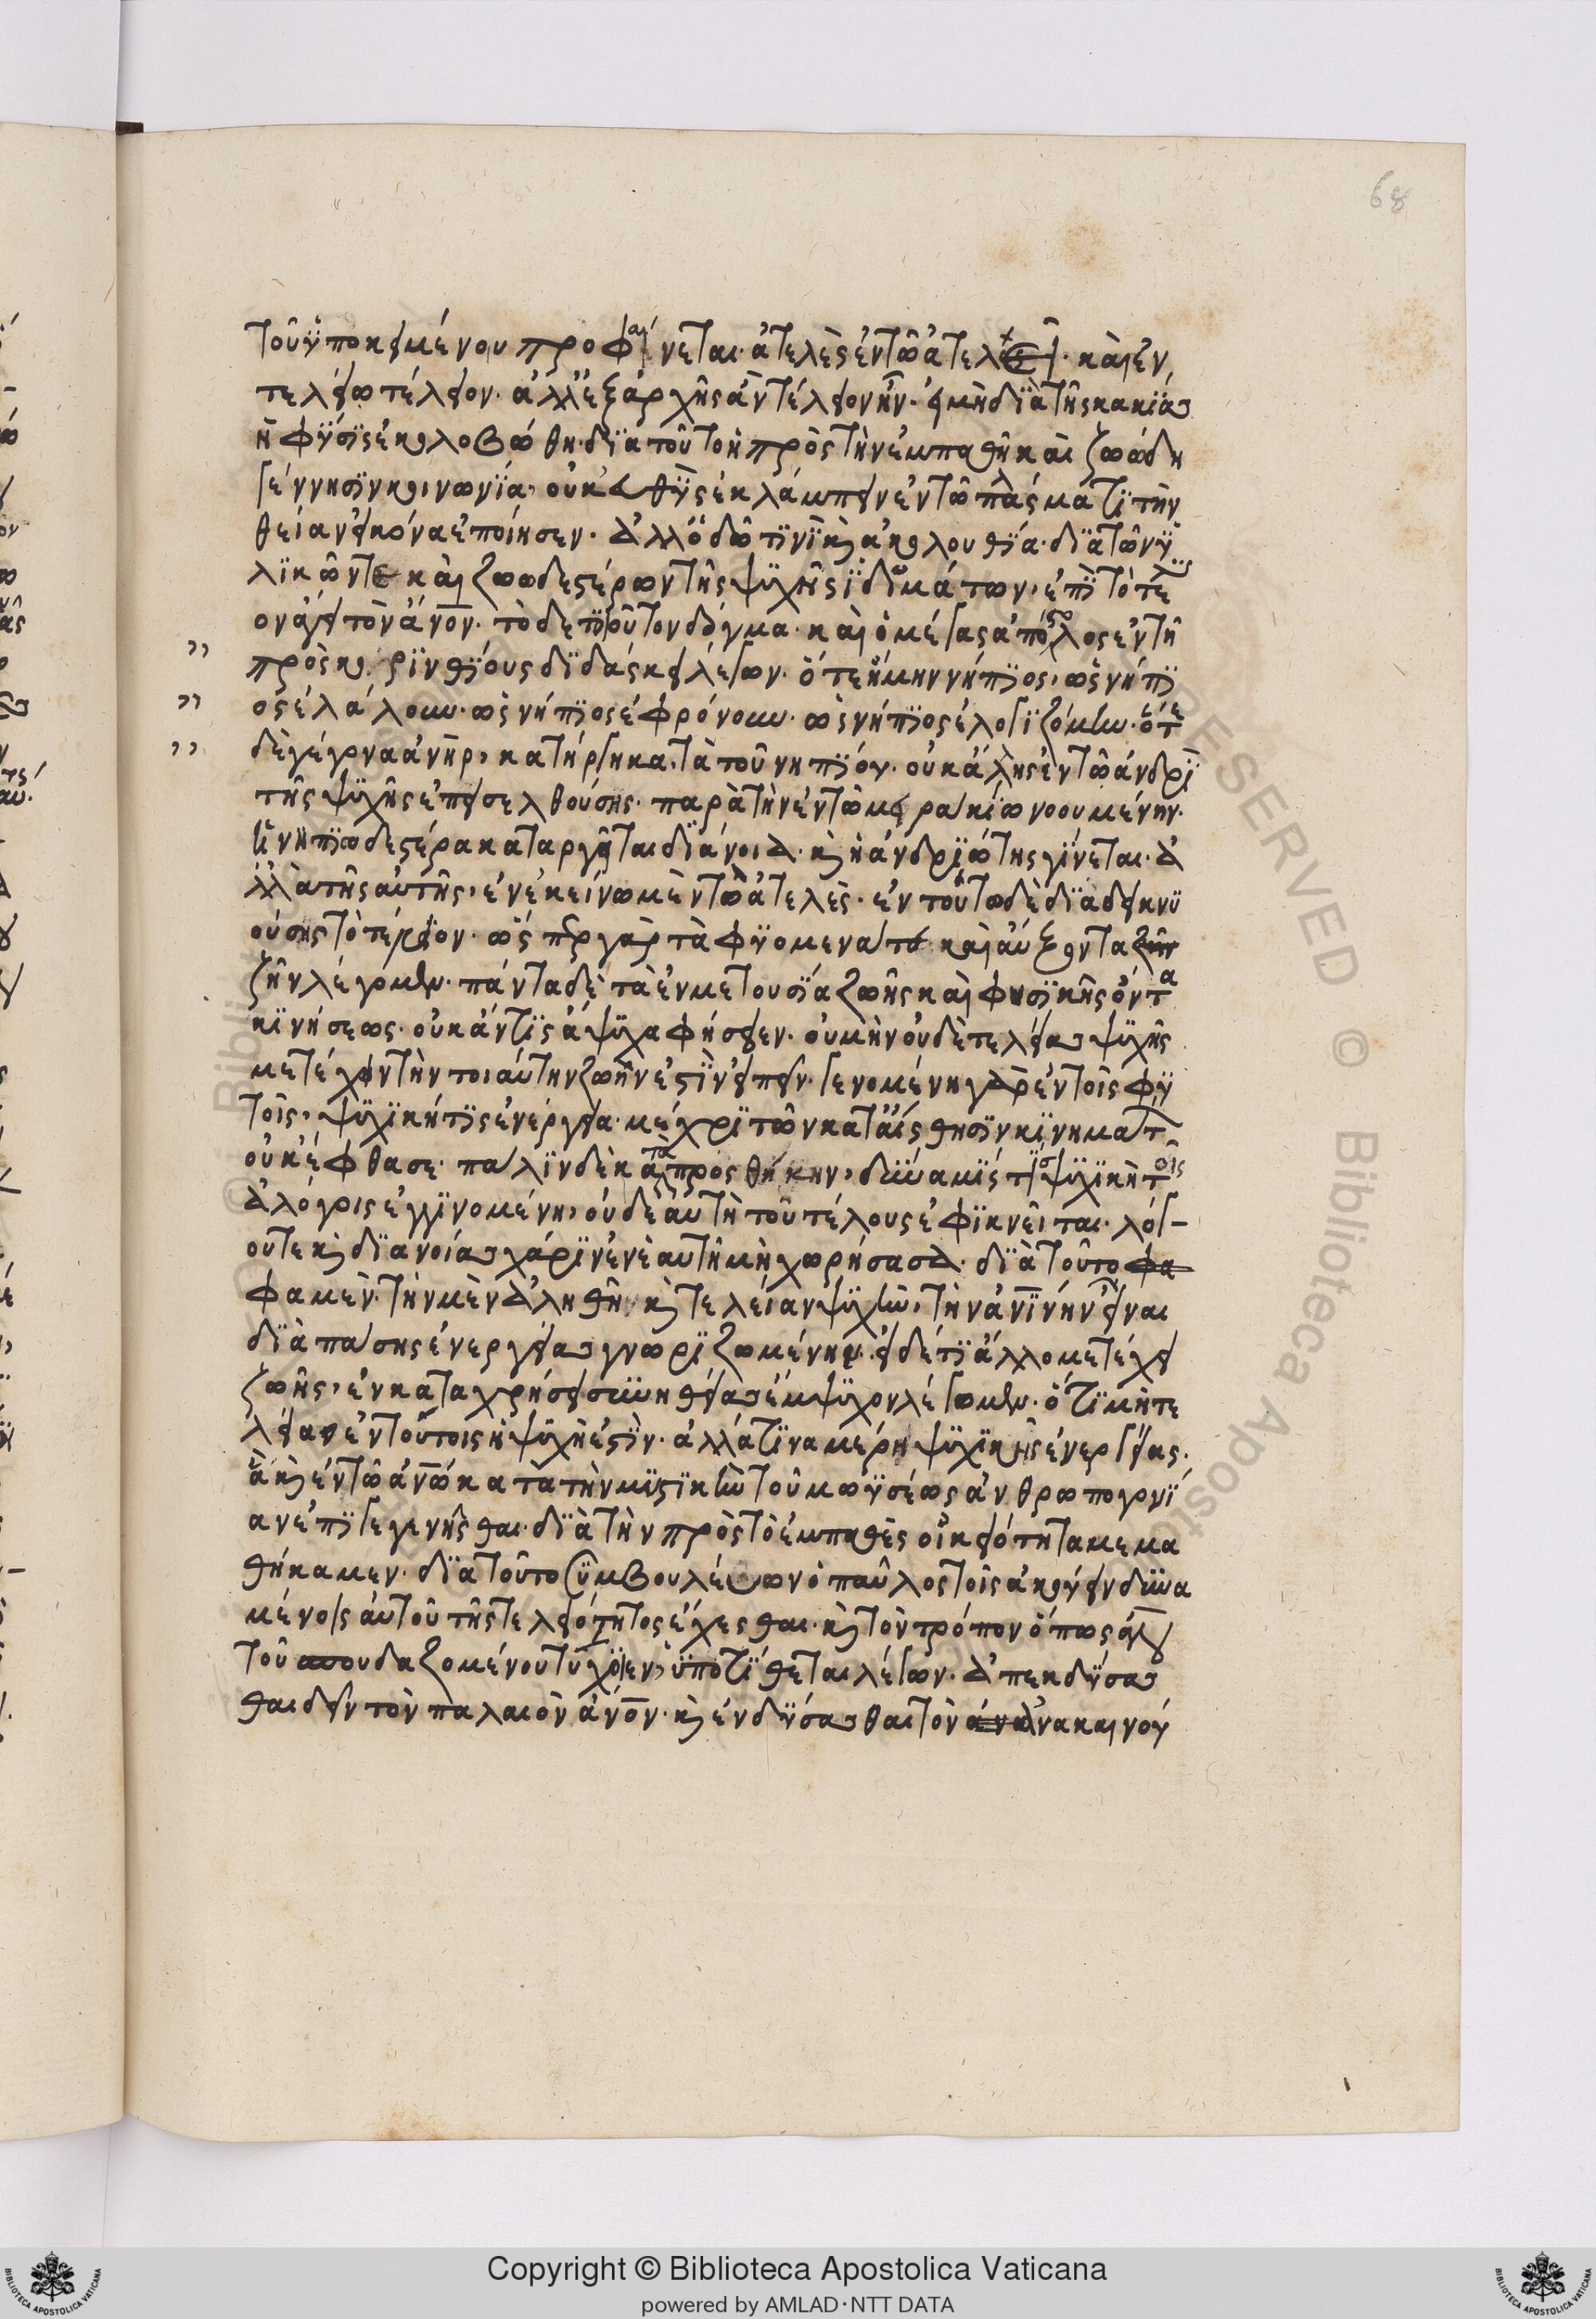 68
τοῦ ὑποκειμένου προφαίνεται· ἀτελὲς ἐν τῶ ἀτελεῖ· καὶ ἐν
τελείω τέλειον· ἀλλ' ἐξαρχῆς ἂν τέλειον ἦν· εἰ μὴ διὰ τῆς κακίας
ἡ φύσις ἐκολοβώθη· διὰ τοῦτο ἡ πρὸς τὴν ἐμπαθῆ καὶ ζωώδη
γέννησιν κοινωνία, οὐκ εὐθὺς ἐκλάμπειν ἐν τῶ πλάσματι τὴν
θείαν εἰκόνα ἐποίησεν· ἀλλ' ὁδῶ τινὶ κ(αὶ) ἀκολουθία· διὰ τῶν ὑ
λικῶν τε καὶ ζωωδεστέρων τῆς ψυχῆς ἰδιωμάτων, ἐπὶ τὸ τέλει
ον ἄγει τὸν ἄνον· τὸ δὲ τοιοῦτον δόγμα· καὶ ὁ μέγας ἀπόστολος ἐν τῆ
πρὸς κορινθίους διδάσκει λέγων· ὅτε ἤμην νήπιος, ὡς νήπι
ος ἐλάλουν· ὡς νήπιος ἐφρόνουν· ὡς νήπιος ἐλογιζόμην· ὅτε
δὲ γέγονα ἀνὴρ, κατήργηκα τὰ τοῦ νηπίου· οὐκ ἄλλης ἐν τῶ ἀνδρὶ
τῆς ψυχῆς ἐπεισελθούσης· παρὰ τὴν ἐν τῶ μειρακίω νοουμένην·
ἡ νηπιωδεστέρα καταργεῖται διάνοια· κ(αὶ) ἡ ἀνδριώτης γίνεται· ἀ
λλὰ τῆς αὐτῆς, ἐν ἐκείνω μὲν τὸ ἀτελὲς· ἐν τούτω δὲ διαδεικνυ
ούσης τὸ τέλειον· ὥσπερ γὰρ τὰ φυόμενά τε καὶ αὔξοντα ζῆν
ζῆν λέγομεν· πάντα δὲ τὰ ἐν μετουσία ζωῆς καὶ φυσικῆς ὄντα
κινήσεως· οὐκ ἄν τις ἄψυχα φήσειεν· οὐ μὴν οὐδὲ τελείας ψυχῆς
μετέχειν τὴν τοιαύτην ζωὴν ἐστὶν εἰπεῖν· γενομένη γὰρ ἐν τοῖς φυ
τοῖς, ψυχικὴ τὶς ἐνέργεια· μέχρι τῶν κατ' αἴσθησιν κινημάτ(ων)
οὐκ ἔφθασε· πάλιν δὲ κατὰ προσθήκην, δύναμίς τις ψυχικὴ τοῖς
ἀλόγοις ἐγγινομένη, οὐδὲ αὐτὴ τοῦ τέλους ἐφικνεῖται· λόγ
ου τε κ(αὶ) διανοίας χάριν ἐν ἑαυτῆ μὴ χωρήσασα· διὰ τοῦτο φα
φαμὲν· τὴν μὲν ἀληθῆ κ(αὶ) τελείαν ψυχὴν, τὴν ἀνίνην εἶναι
διὰ πάσης ἐνεργείας γνωριζομένην· εἰ δέ τι ἄλλο μετέχει
ζωῆς, ἐν καταχρήσει συνηθείας ἔμψυχον λέγομεν· ὅτι μὴ τε
λεία ἐν τούτοις ἡ ψυχὴ ἐστὶν· ἀλλά τινα μέρη ψυχικῆς ἐνεργείας·
ἃ κ(αὶ) ἐν τῶ ἀνω κατὰ τὴν μυστικὴν τοῦ μωυσέως ἀνθρωπογονί
αν ἐπιγεγενῆσθαι· διὰ τὴν πρὸς τὸ ἐμπαθὲς οἰκειότητα μεμα
θήκαμεν· διὰ τοῦτο συμβουλεύων ὁ παῦλος τοῖς ἀκούειν δυνα
μένοις αὐτοῦ τῆς τελειότητος ἔχεσθαι· κ(αὶ) τὸν τρόπον ὅπως ἂν
τοῦ σπουδαζομένου τύχοιεν, ὑποτίθεται λέγων· ἀπεκδύσασ
θαι δεῖν τὸν παλαιὸν ἄνον· κ(αὶ) ἐνδύσασθαι τὸν ἀνακαινού
Copyright © Biblioteca Apostolica Vaticana
powered by AMLAD·NTT DATA